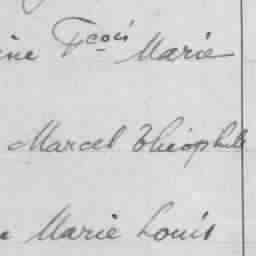 ine Fcois Marie
Marcel Théophile
Marie Louis